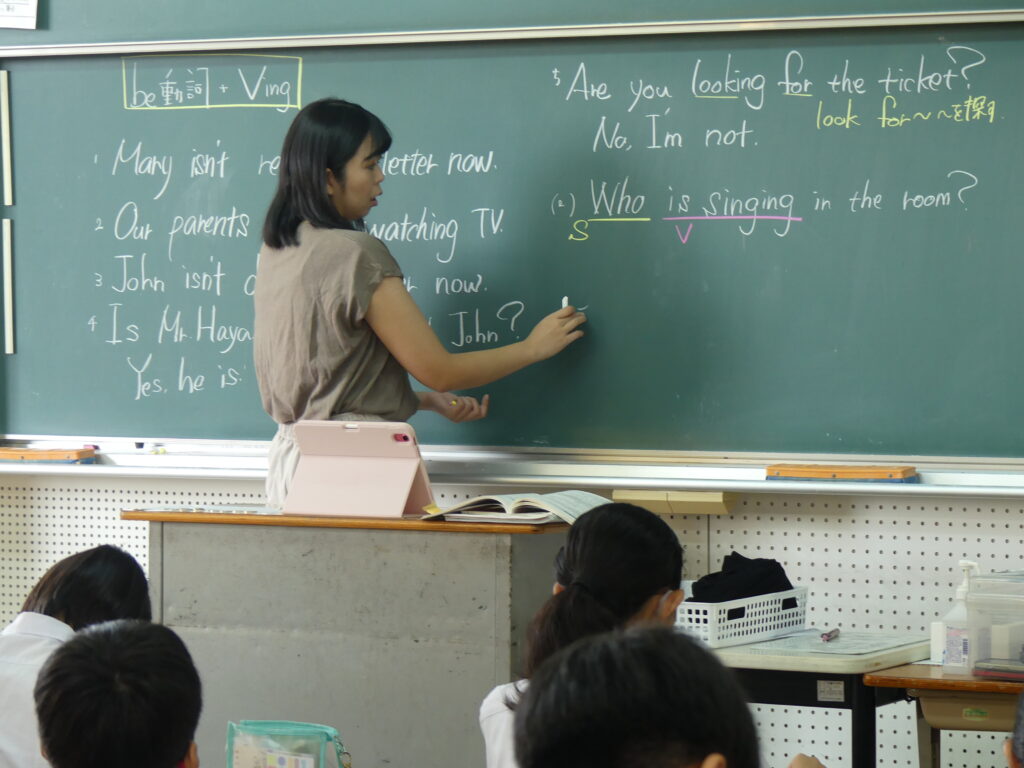 be動詞 + Ving
1 Mary isn't re letter now.
2 Our parents watching TV.
3 John isn't now.
4 Is Mr. Haya John?
Yes, he is.
5 Are you looking for the ticket?
look for~ ~を探す
No, I'm not.
(2) Who is singing in the room?
S V